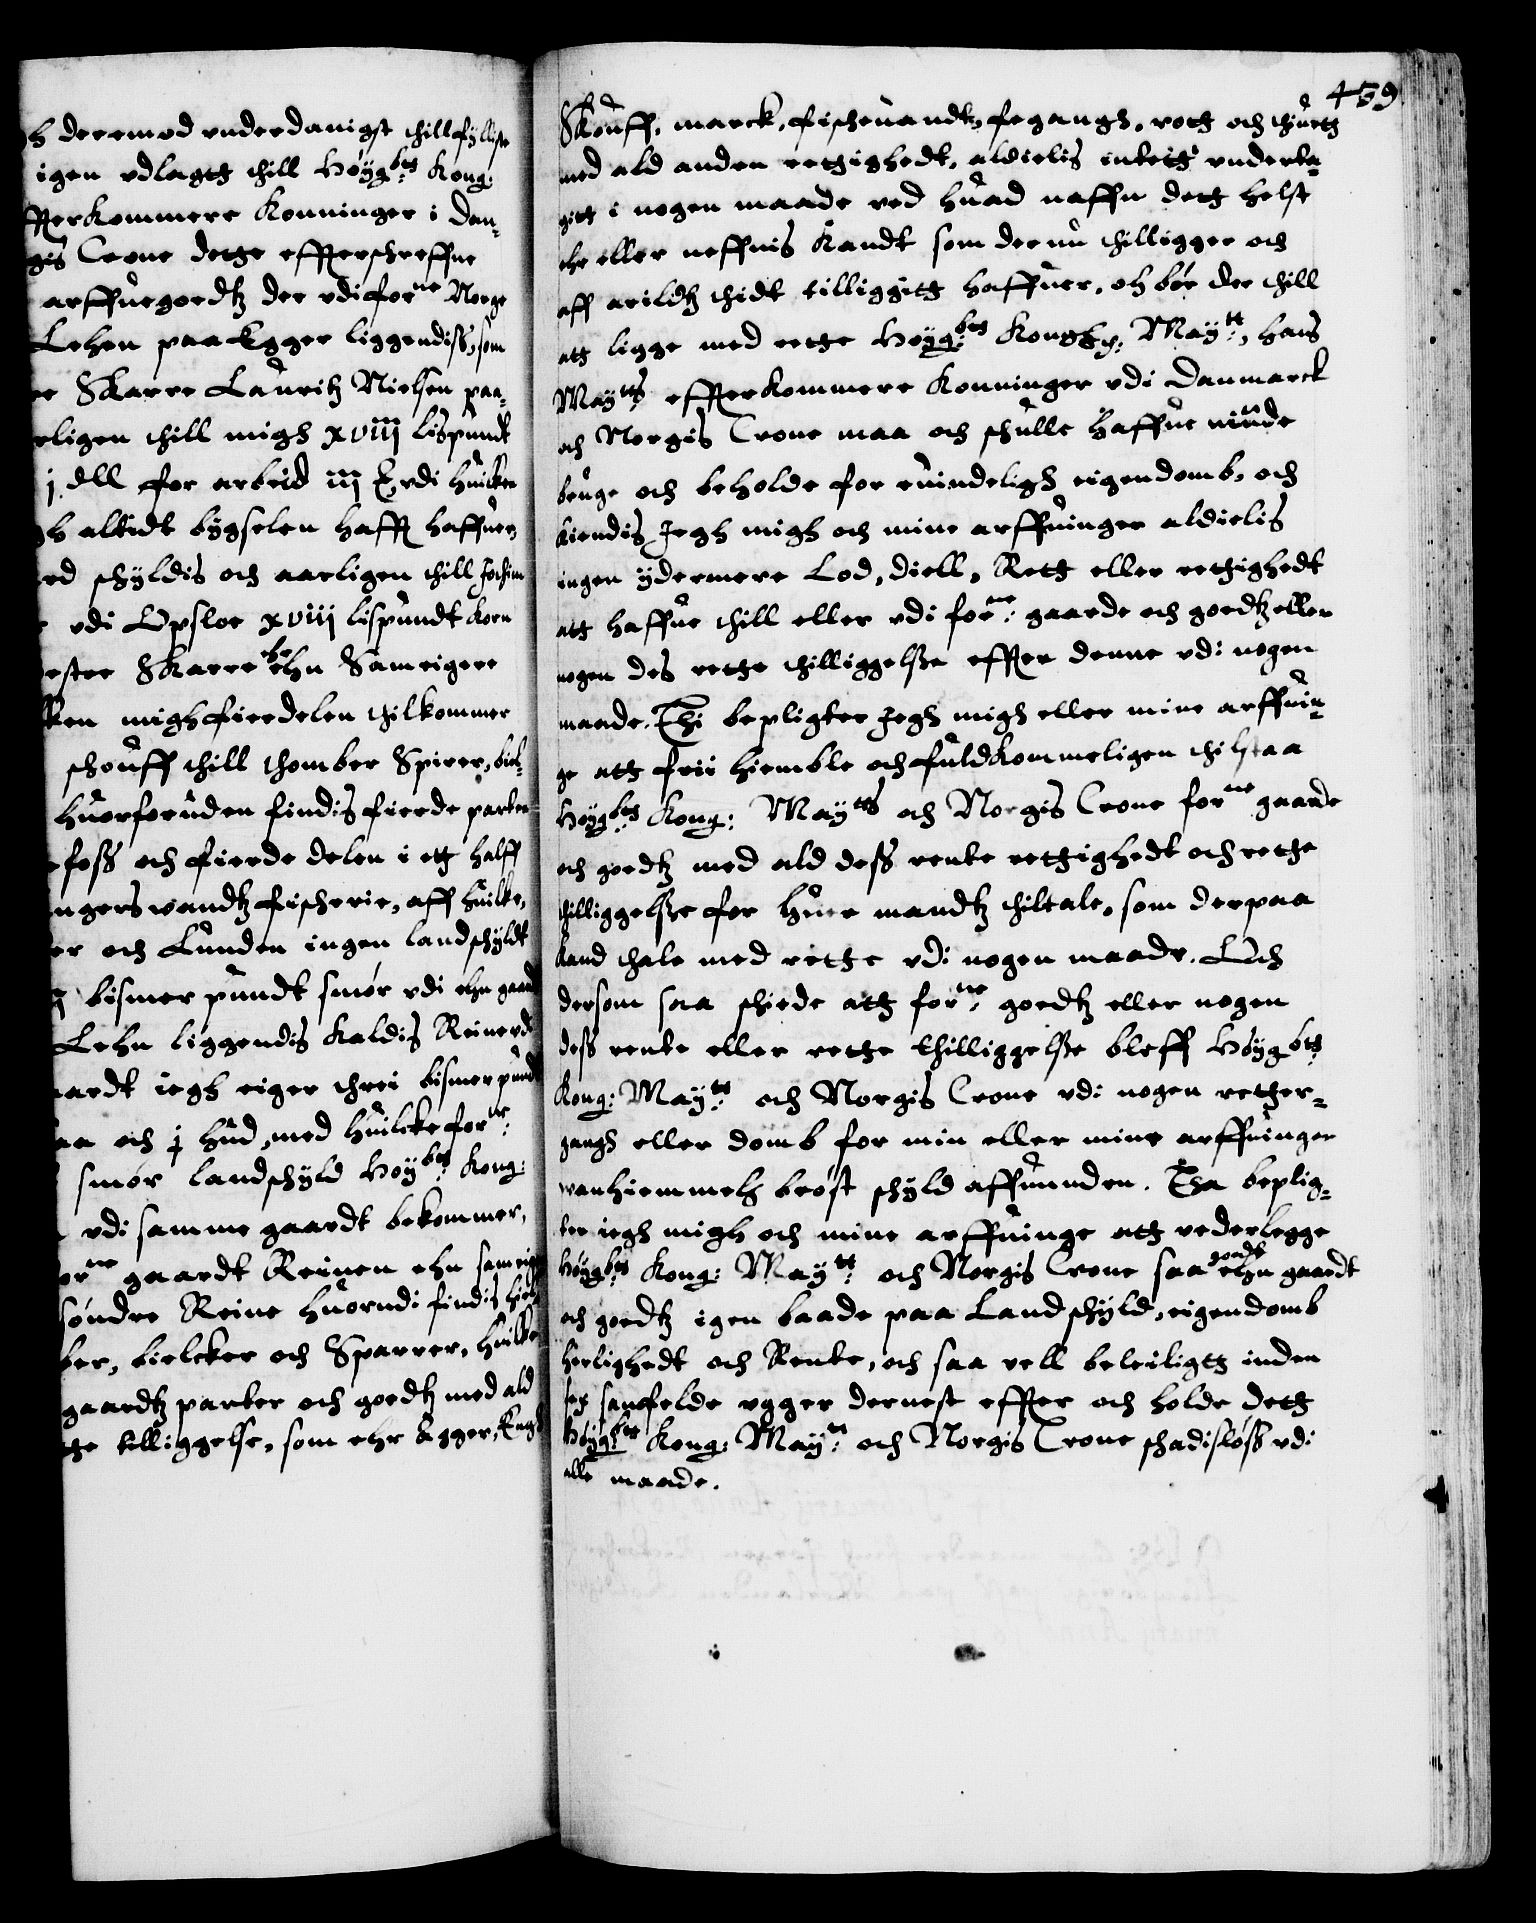 h deremod vnderdanigst thillfyllist
igen vdlagtt thill Høyg^bet: Kong:
ffterKommere Konninger i Dan,
gis Crone dette effterschreffne
arffuegoedtz der vdi for^ne Norge
Lehen paa Egger liggendiss, som
re Skarre Lauritz Nielsen paa,
rligen thill migh xviij lispundt
j dll for arbeid iij ℔, vdi huilken
gh altidt bygselen hafft haffuer
ed schyldis och aarligen thill Jochim
vdi Opsloe xviij lispundt Korn
ester Skarre ehr ehn Sameigere
ken migh fierdelen thilkommer
schouff thill thomber Spirer, biel,
huorforuden findis fierde parten
efoss och fierde delen i ett halff
ngers wandtz fischerie, aff huilke,
er och Lunden ingen landschyldt
bismer pundt smør vdi ehn gaard
Lehn liggendis Kaldis Reinerdt
aardt iegh eiger threi bismer pund
aa och j hud, med huilcke for^ne:
smør landschyld Høy^bet: Kong:
vdi samme gaardt bekommer,
or^ne gaardt Reinen ehn sameige
søndre Reine huorudi findis hiel
ber, bielcker och Sparrer, huilke
gaardtz parter och goedtz med ald
tte tilliggelse, som ehr Agger, Eng
459
Skouff, marck, fischeuandt, fegangh, vott och thiurtt
med ald anden rettighedt, aldielis intett vnderta,
gitt i nogen maade ved huad naffn dett helst
ehr eller neffnis Kandt som der nu thilligger och
aff arildtz thidt tilliggitt haffuer, och bør der thill
att ligge med rette Høyg:^bet Konghe: May^tt:, hans
May^tts effterKommere Konninger vdi Danmarck
och Norgis Crone maa och schulle haffue niude
bruge och beholde for euindeligh eigendomb, och
kiendis Jegh migh och mine arffuinger aldielis
ingen ydermere Lod, diell, Rett eller rettighedt
att haffue thill eller vdi for^ne: gaarde och goedtz eller
nogen des rette thilliggelsse effter denne vdi nogen
maade. Thi bepligter Jegh migh eller mine arffuin,
ge att frii hiemble och fuldkommeligen thilstaa
Høyg^bet: Kong: May^tts och Norgis Crone for^ne gaarde
och goedtz med ald dess rente rettighedt och rette
thilliggelsse for huer mandtz thiltale, som derpaa
kand thale med rette vdi nogen maade. Och
dersom saa schiede att for^ne: goedtz eller nogen
dess rente eller rette thilliggelsse bleff Høyg^bet:
Kong: May^tt: och Norgis Crone vdi nogen retter,
gangh eller domb for min eller mine arffuinger
wanhiemmels brøst schyld affuunden. Tha beplig,
ter iegh migh och mine arffuinge att vederlegge
Høyg^bet: Kong: May^tt: och Norgis Crone saa goedt ehn gaardt
och goedtz igen baade paa Landschyld, eigendomb
herlighedt och Rente, och saa vell beleiligtt inden
sex samfelde vgger dernest effter och holde dett
Høyg^bet: Kong: May^tt: och Norgis Crone schadisløss vdi
alle maade.